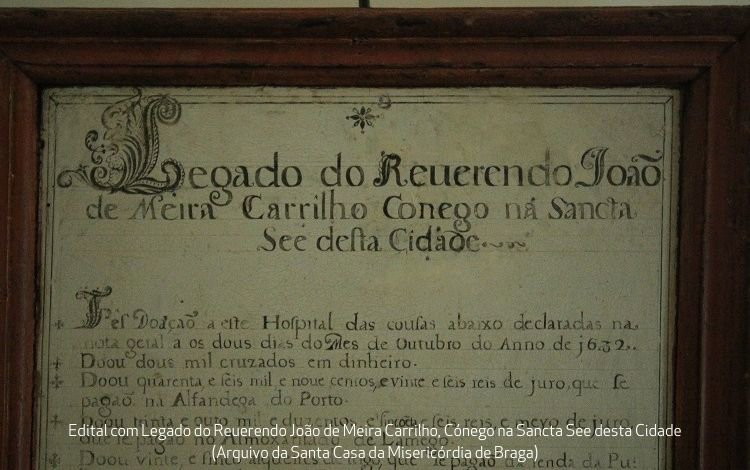 Legado do Reuerendo João
de Meira Carrilho Conego ná Sancta
Seé desta Cidade
Fes Doação a este Hospital das cousas abaixo declaradas na
nota geral a os dous dias do Mes de Outubro do Anno de j632.
Doou dous mil cruzados em dinheiro.
Doou quarenta e seis mil e noue centos, e vinte e seis reis de juro, que se
pagaõ ná Alfandega do Porto.
Doou vinta e outo mil e duzentos e seis reis, e meyo de juro
que se pagaõ no Almoxarifado de Lamego.
Doou vinte, e sinco alqueires de trigo, que se pagaõ de renda da
Edital com Legado do Reuerendo João de Meira Carrilho, Cónego na Sancta See desta Cidade
(Arquivo da Santa Casa da Misericórdia de Braga)